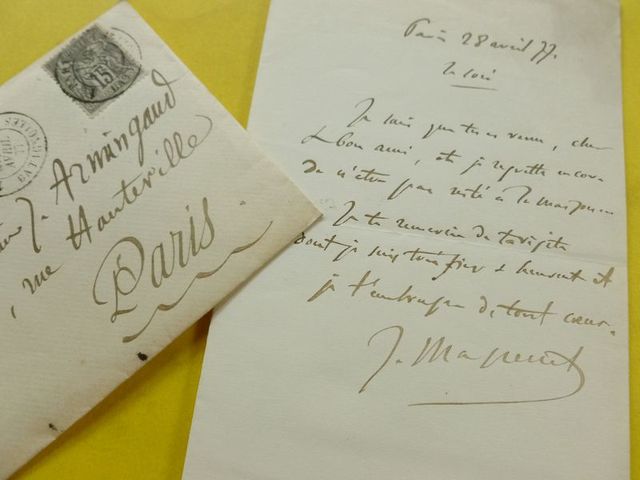 J. Armingaud
rue Hauteville
Paris
15
Paris 28 avril 77.
le soir
Je sais que tu es venu, cher
& bon ami, et je regrette encore
de n'être pas resté à la maison
Je te remercie de ta visite
dont je suis très fier & heureux et
je t'embrasse de tout cœur.
J. Massenet